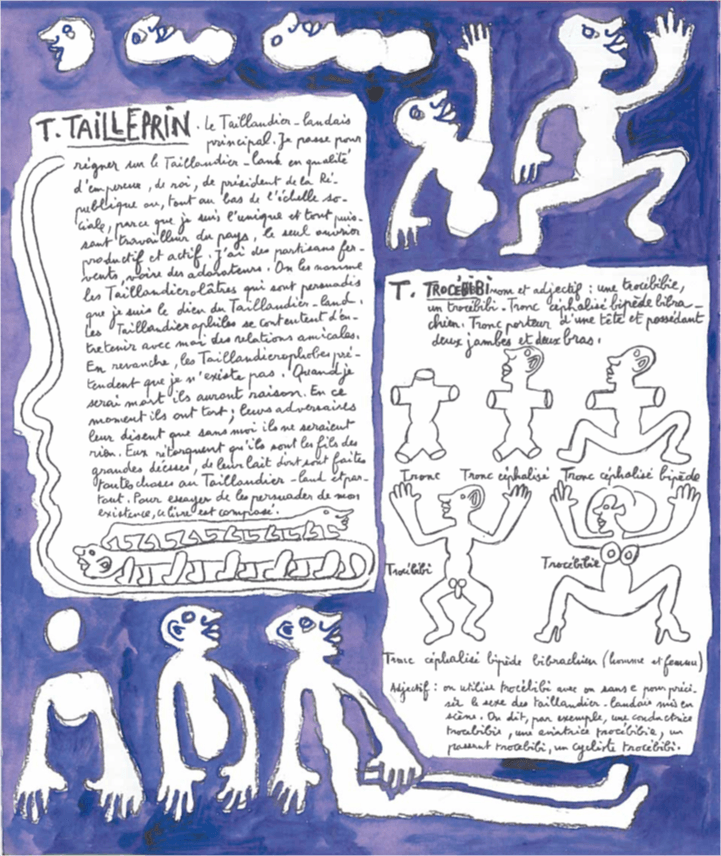 T. TAILLEPRIN. Le Taillandier-landais
principal. Je passe pour
régner sur le Taillandier-land en qualité
d'empereur, de roi, de président de la Ré-
publique ou, tout au bas de l'échelle so-
ciale, parce que je suis l'unique et tout puis-
sant travailleur du pays, le seul ouvrier
productif et actif. J'ai des partisans fer-
vents, voire des adorateurs. On les nomme
les Taillandierolâtres qui sont persuadés
que je suis le dieu du Taillandier-land.
Les Taillandierophiles se contentent d'en-
tretenir avec moi des relations amicales.
En revanche, les Taillandierophobes pré-
tendent que je n'existe pas. Quand je
serai mort ils auront raison. En ce
moment ils ont tort ; leurs adversaires
leur disent que sans moi ils ne seraient
rien. Eux rétorquent qu'ils sont les fils des
grandes déesses, de leur lait dont sont faites
toutes choses au Taillandier-land et par-
tout. Pour essayer de les persuader de mon
existence, ce livre est composé.
T. TROCÉBIBI nom et adjectif : une trocébibie,
un trocébibi. Tronc céphalisé bipède bibra-
chien. Tronc porteur d'une tête et possédant
deux jambes et deux bras.
Tronc Tronc céphalisé Tronc céphalisé bipède
Trocébibi Trocébibie
Tronc céphalisé bipède bibrachien (homme et femme)
Adjectif : on utilise trocébibi avec ou sans e pour préci-
ser le sexe des taillandier-landais mis en
scène. On dit, par exemple, une conductrice
trocébibie, une trocébibie, un
passant trocébibi, un cycliste trocébibi.